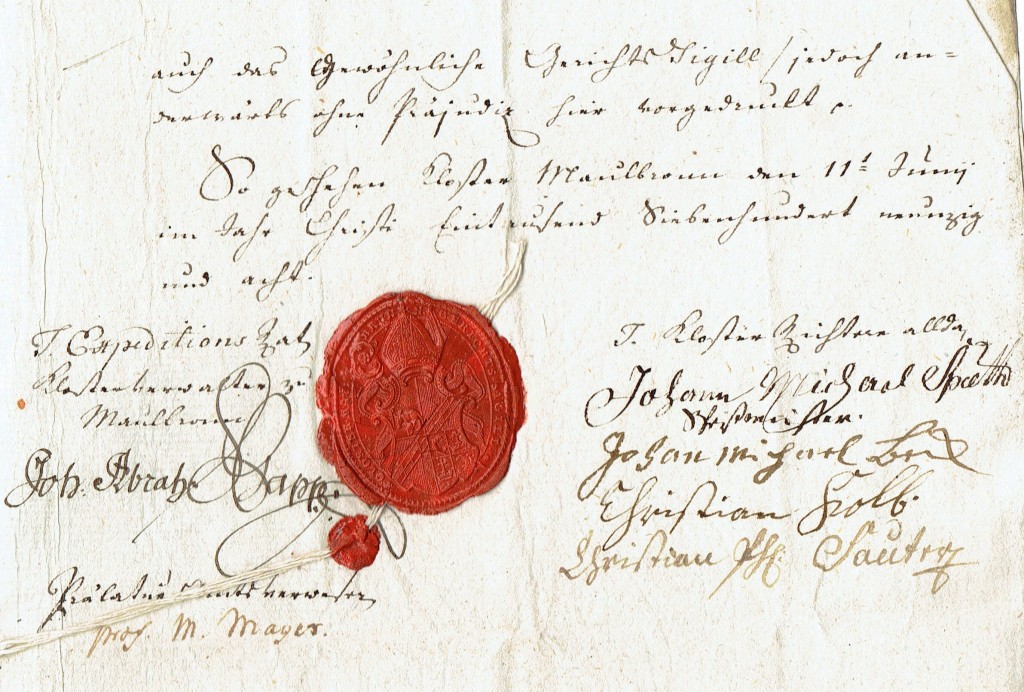 auch das Gewöhnliche Gerichts Sigill / jedoch an=
derwärts ohne Präjudiz hier vorgedruckt.
So geschehen Kloster Maulbronn den 11t Junij
im Jahr Christi Eintausend Siebenhundert neunzig
und acht.
T. Expeditions Rath
Klosterverwalter zu
Maulbronn
Joh. Abrah. Kapp.
Prälatur Amtsverweser
prof. M. Mayer.
T. Kloster Richtere allda,
Johann Michael Späth
Johan michael Beck
Christian Kolb.
Christian Ph. Sauter